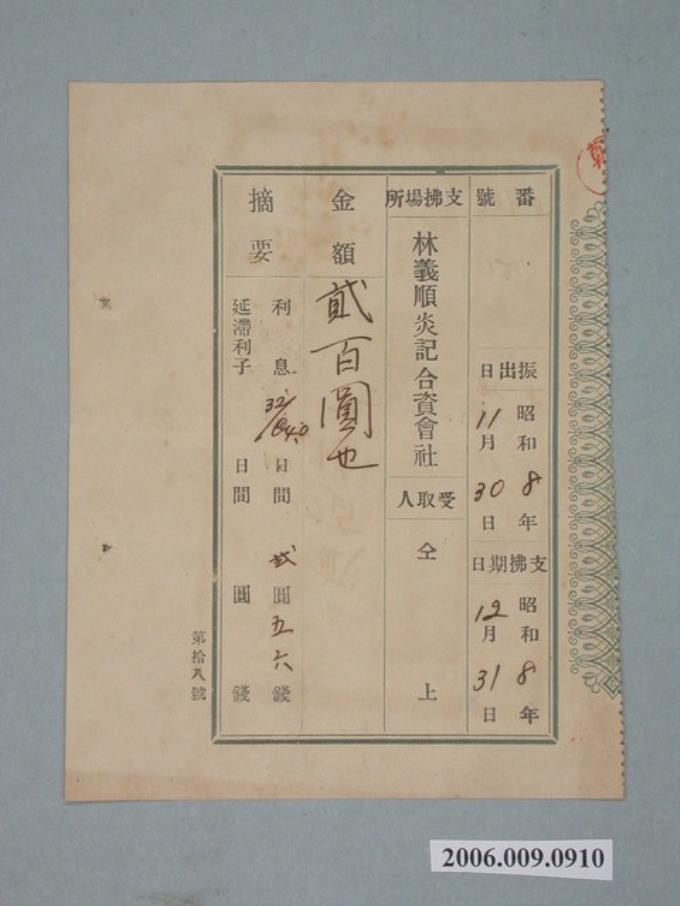 番號
振出日
昭和8年
11月30日
支拂期日
昭和8年
12月31日
支拂場所
林義順炎記合資會社
受取人
仝上
金額
貳百圓也
摘要
利息 32/40 日間 弍圓五六錢
延滯利子 日間 圓 錢
第拾八號
2006.009.0910